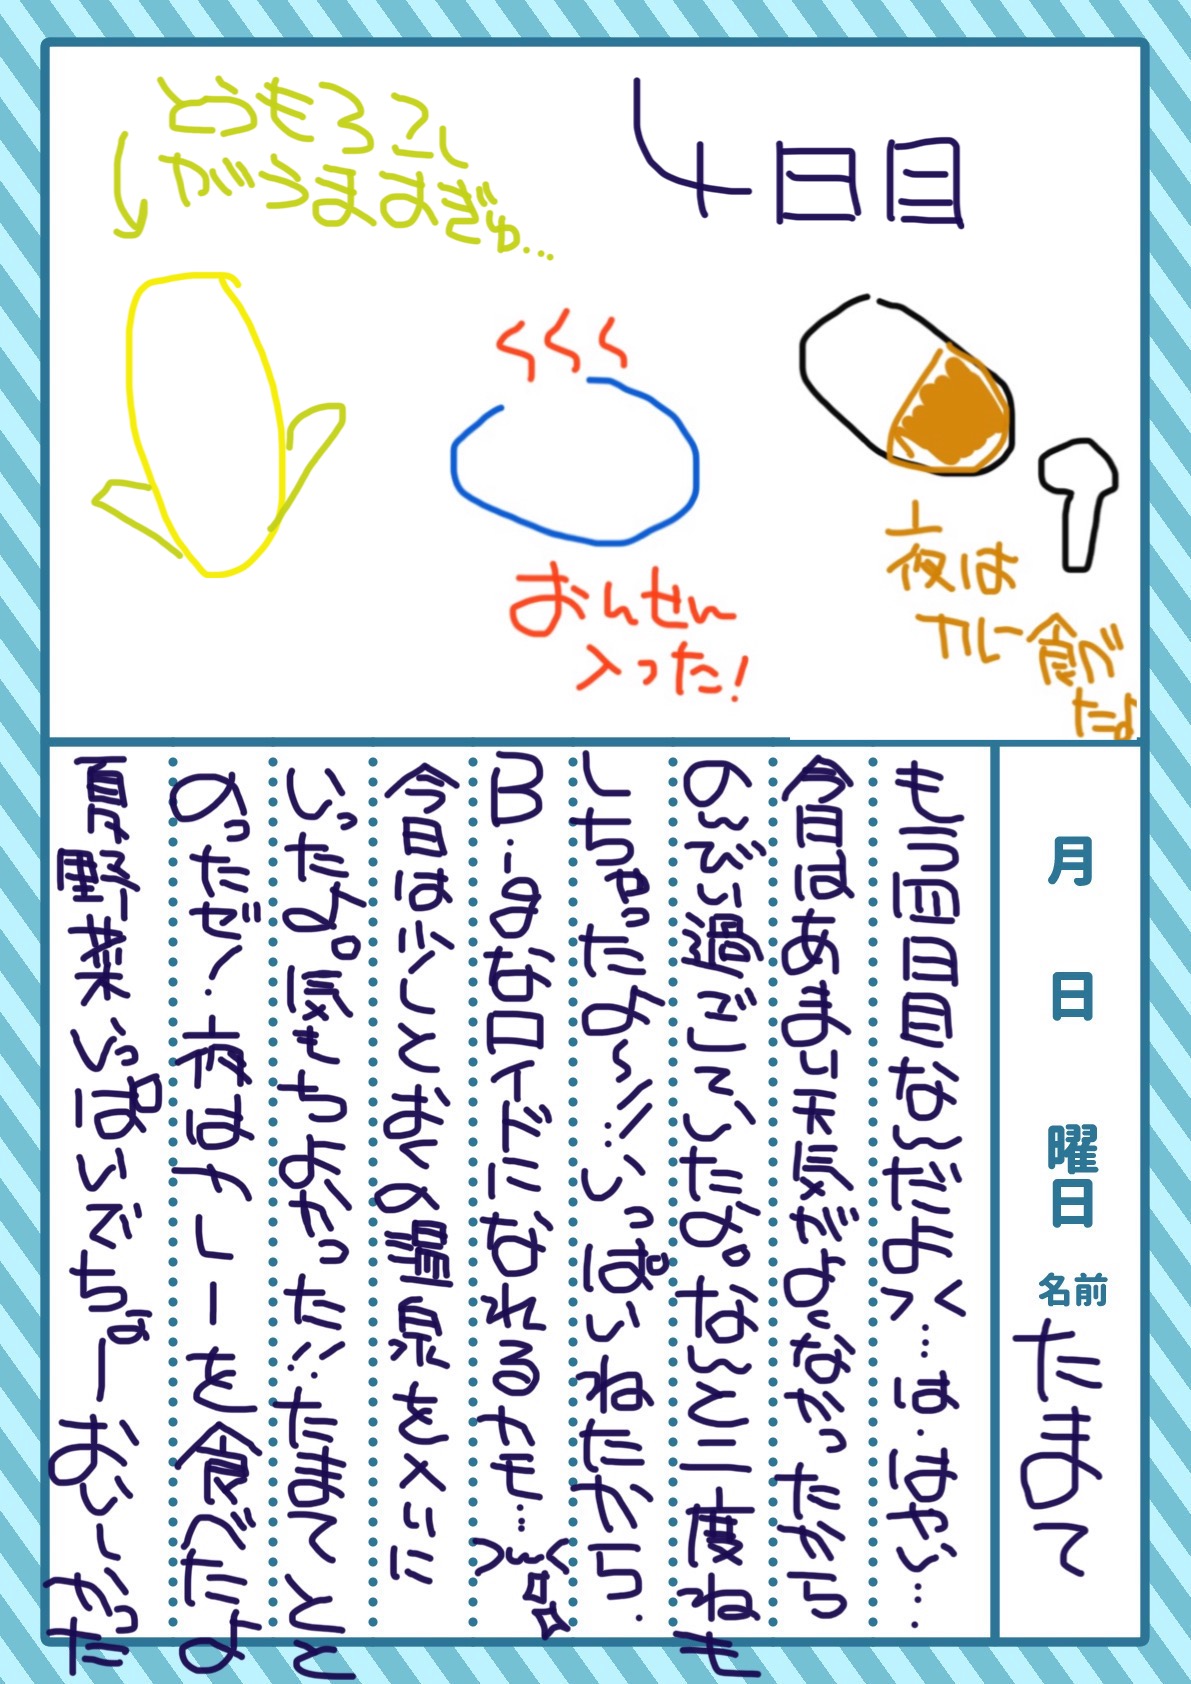 4日目
とうもろこし
がうますぎゅ…
おんせん
入った!
夜は
カレー食べ
たよ
月 日 曜日 名前 たまて
もう四日目な〜だよ><…は.はやい…
今日はあまり天気がよくなかったから
の〜びり過ごしていたよ。な〜と二度ねも
しちゃったよ〜!!いっぱいねたから.
B.i.gなロイドになれるかも…>ω<
今日は少しとおくの温泉を入りに
いったよ。気もちよかった!!たまてとと
のったぜ!夜はカレーを食べたよ
夏野菜いっぱいでちょーおいしかった